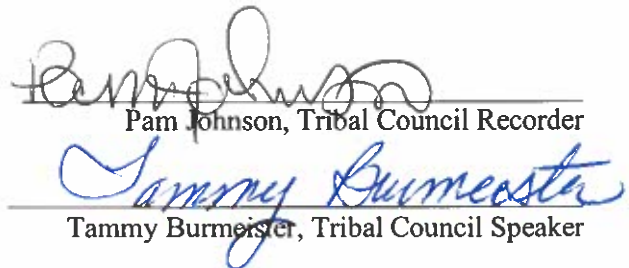 Pam Johnson
Pam Johnson, Tribal Council Recorder
Tammy Burmeister
Tammy Burmeister, Tribal Council Speaker